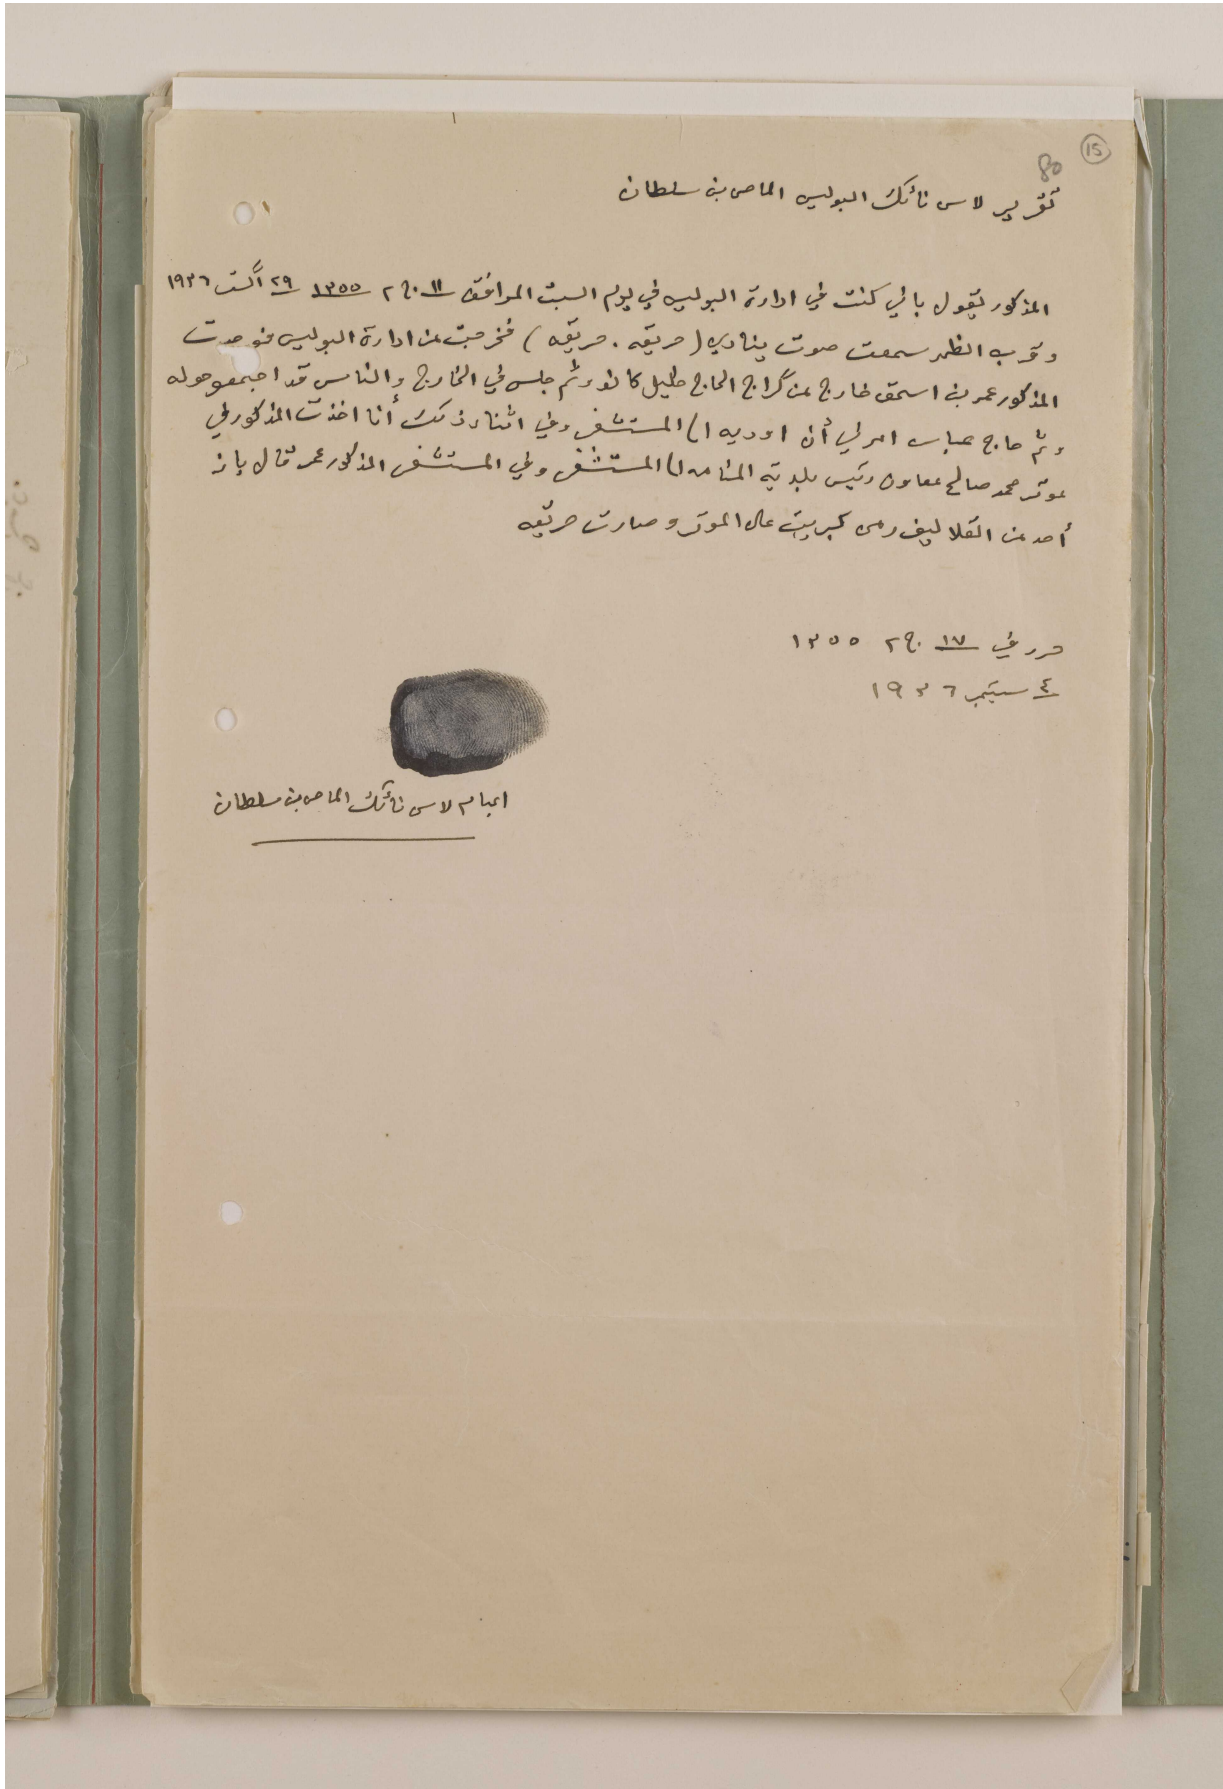 15
80
تقرير لاس نائك البوليس الماص بن سلطان
المذكور يقول باني كنت في ادارة البوليس في يوم السبت الموافق ١١ ج ٢ ١٣٥٥ ٢٩ آگست ١٩٣٦
وقرب الظهر سمعت صوت ينادي (حريقه . حريقه) فخرجت من ادارة البوليس فوجدت
المذكور عمر بن اسحق خارج من گراج الحاج خليل كانو وثم جلس في الخارج والناس قد اجتمعو حوله
وثم حاج عباس امرني أن اوديه الى المستشفى وفي اثناء ذلك أنا اخذت المذكور في
موتر محمد صالح معاون رئيس بلدية المنامه الى المستشفى وفي المستشفى المذكور عمر قال بان
أحد من القلاليف رمى كبريت على الموتر وصارت حريقه
حرر في ١٧ ج ٢ ١٣٥٥
٤ سبتمبر ١٩٣٦
ابهام لاس نائك الماص بن سلطان